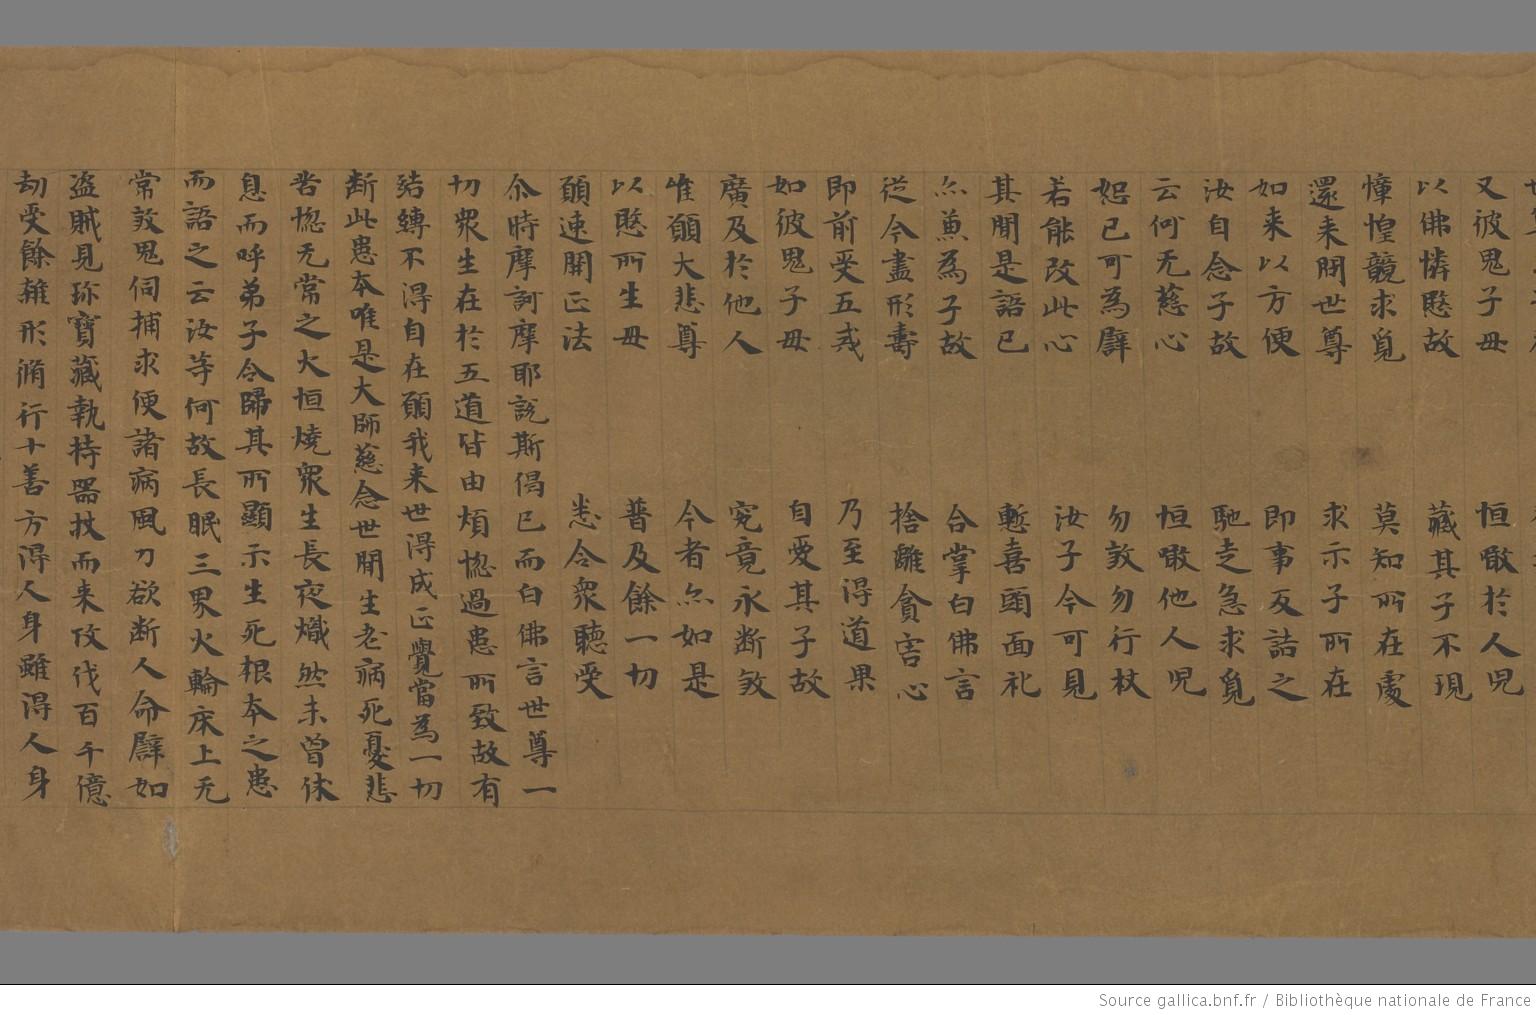 又彼鬼子母 恒噉於人児
以佛憐愍故 藏其子不現
慞惶競求覓 莫知所在處
還来問世尊 求示子所在
如来以方便 即事反詰之
汝自念子故 馳走急求覓
云何无慈心 恒噉他人児
恕已可為譬 勿煞勿行杖
若能改此心 汝子今可見
其聞是語已 慙喜頭面礼
亦兼為子故 合掌白佛言
従今盡形壽 捨離貪害心
即前受五戒 乃至得道果
如彼鬼子母 自愛其子故
廣及於他人 究竟永断煞
唯願大悲尊 今者亦如是
以愍所生母 普及餘一切
願速開正法 悉令衆聽受
尒時摩訶摩耶説斯偈已而白佛言世尊一
切衆生在於五道皆由煩惚過患所致故有
結縛不得自在願我来世得成正覺當為一切
断此患本唯是大師慈念世間生老病死憂悲
苦惚无常之火恒燒衆生長夜熾然未曾休
息而呼弟子令歸其所顯示生死根本之患
而語之云汝等何故長眠三界火輪床上无
常煞鬼伺捕求便諸病風刀欲断人命譬如
盗賊見珎寶藏執持器杖而来攻伐百千億
劫受餘雑形脩行十善方得人身雖得人身
Source gallica.bnf.fr / Bibliothèque nationale de France